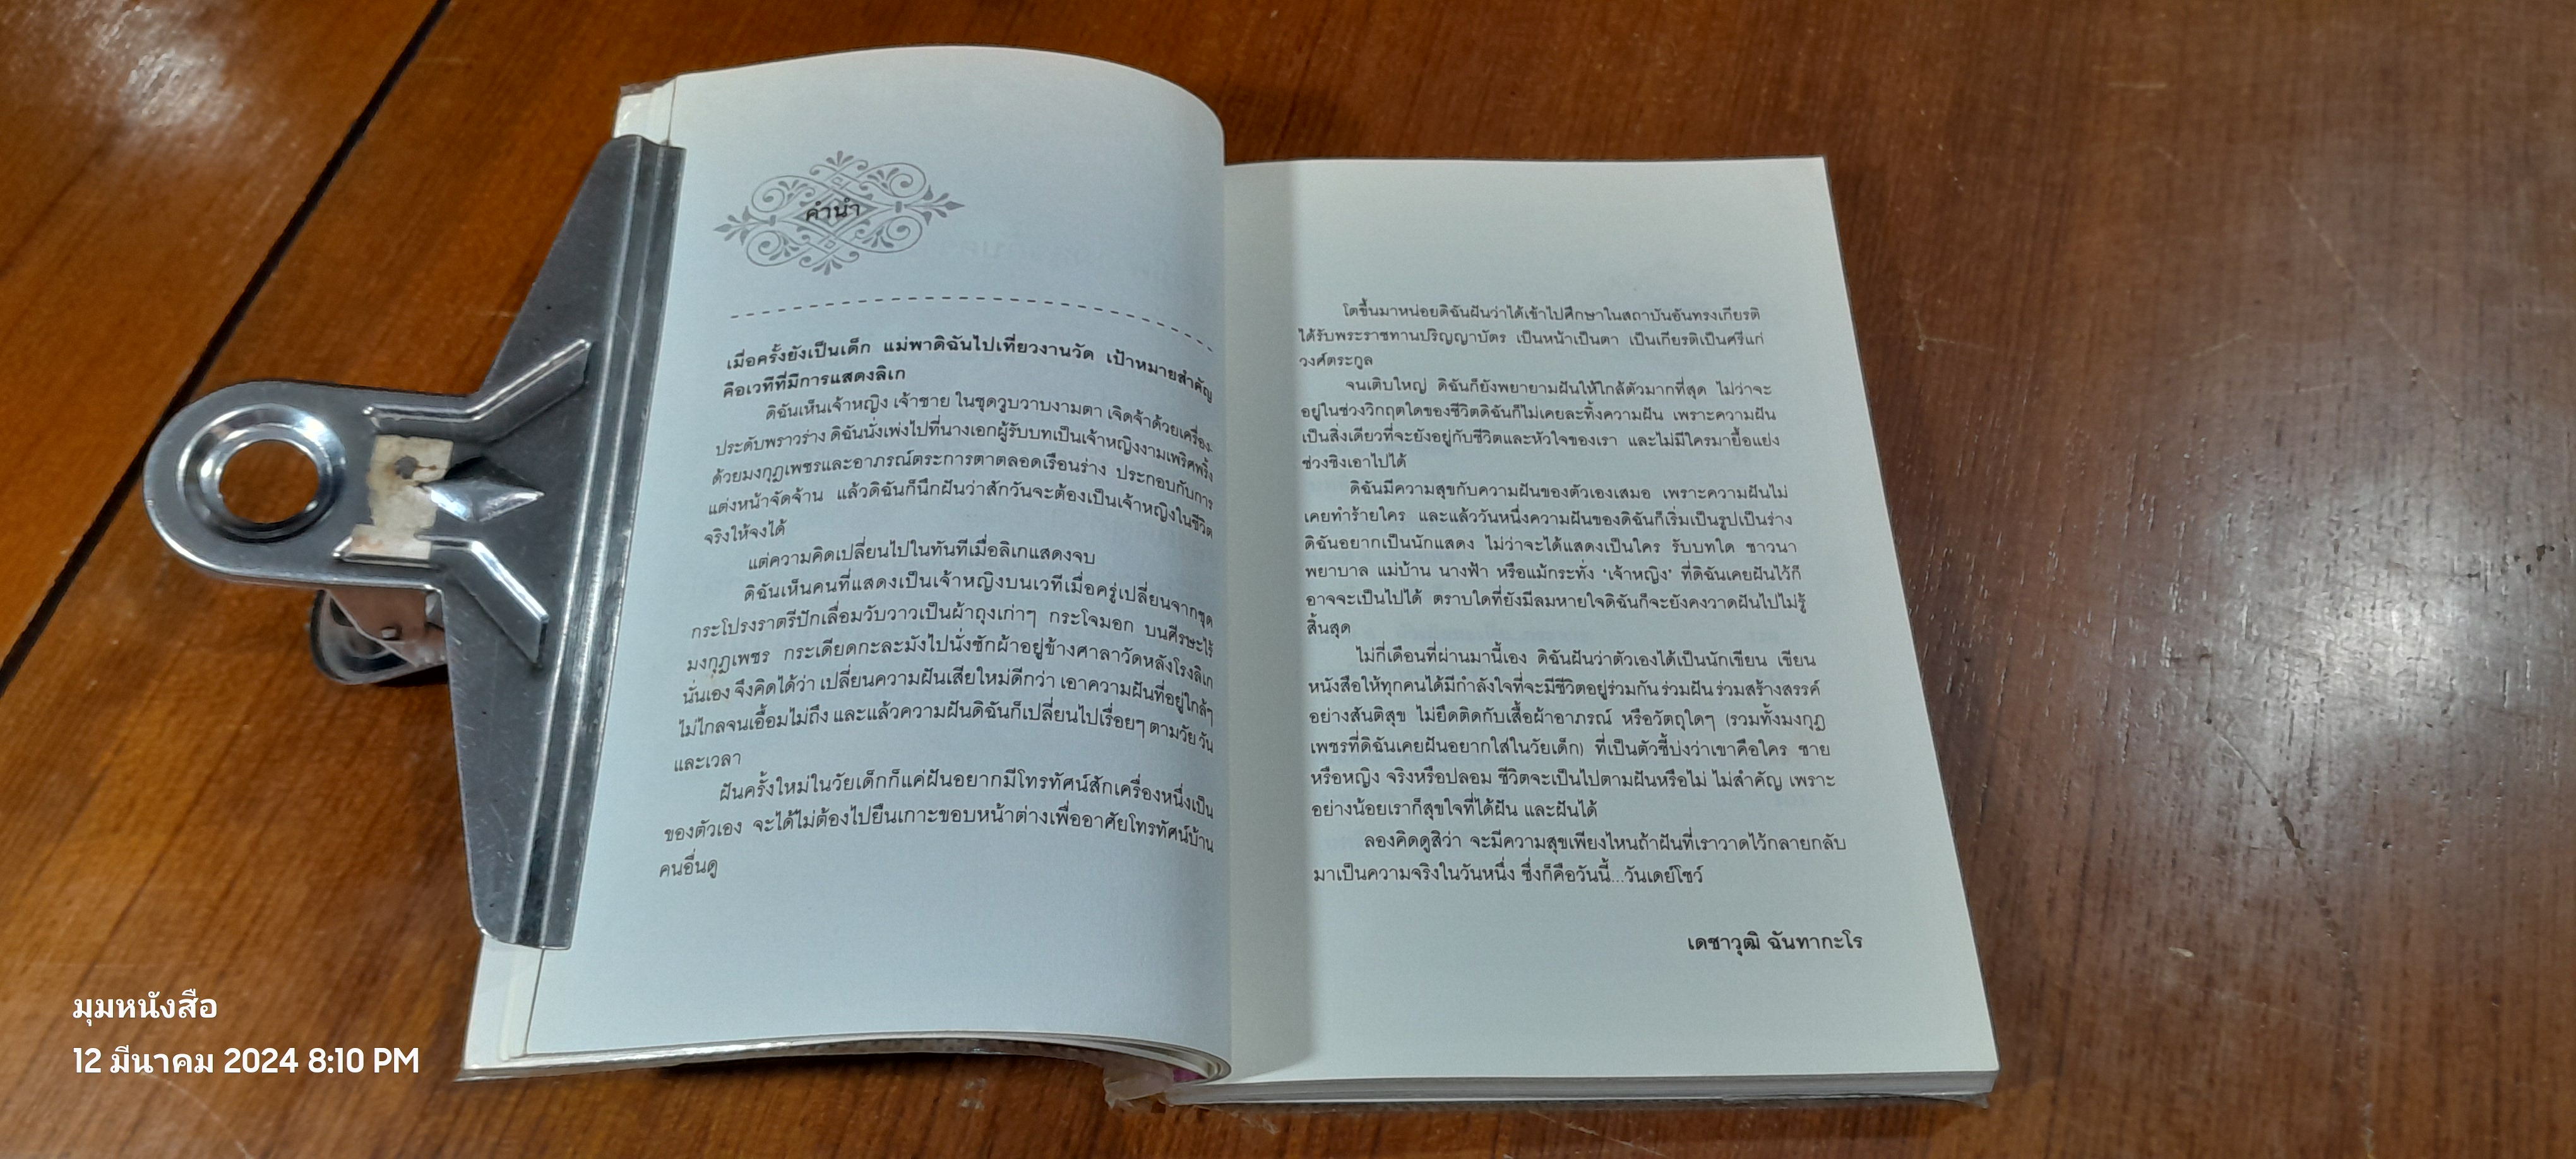 คำนำ
เมื่อครั้งยังเป็นเด็ก แม่พาดิฉันไปเที่ยวงานวัด เป้าหมายสำคัญ
คือเวทีที่มีการแสดงลิเก
ดิฉันเห็นเจ้าหญิง เจ้าชาย ในชุดวูบวาบงามตา เจิดจ้าด้วยเครื่อง-
ประดับพราวร่าง ดิฉันนั่งเพ่งไปที่นางเอกผู้รับบทเป็นเจ้าหญิงงามเพริศพริ้ง
ด้วยมงกุฎเพชรและอาภรณ์ตระการตาตลอดเรือนร่าง ประกอบกับการ
แต่งหน้าจัดจ้าน แล้วดิฉันก็นึกฝันว่าสักวันจะต้องเป็นเจ้าหญิงในชีวิต
จริงให้จงได้
แต่ความคิดเปลี่ยนไปในทันทีเมื่อลิเกแสดงจบ
ดิฉันเห็นคนที่แสดงเป็นเจ้าหญิงบนเวทีเมื่อครู่เปลี่ยนจากชุด
กระโปรงราตรีปักเลื่อมวับวาวเป็นผ้าถุงเก่าๆ กระโจมอก บนศีรษะไร้
มงกุฎเพชร กระเดียดกะละมังไปนั่งซักผ้าอยู่ข้างศาลาวัดหลังโรงลิเก
นั่นเอง จึงคิดได้ว่า เปลี่ยนความฝันเสียใหม่ดีกว่า เอาความฝันที่อยู่ใกล้ๆ
ไม่ไกลจนเอื้อมไม่ถึง และแล้วความฝันดิฉันก็เปลี่ยนไปเรื่อยๆ ตามวัย วัน
และเวลา
ฝันครั้งใหม่ในวัยเด็กก็แค่ฝันอยากมีโทรทัศน์สักเครื่องหนึ่งเป็น
ของตัวเอง จะได้ไม่ต้องไปยืนเกาะขอบหน้าต่างเพื่ออาศัยโทรทัศน์บ้าน
คนอื่นดู
โตขึ้นมาหน่อยดิฉันฝันว่าได้เข้าไปศึกษาในสถาบันอันทรงเกียรติ
ได้รับพระราชทานปริญญาบัตร เป็นหน้าเป็นตา เป็นเกียรติเป็นศรีแก่
วงศ์ตระกูล
จนเติบใหญ่ ดิฉันก็ยังพยายามฝันให้ใกล้ตัวมากที่สุด ไม่ว่าจะ
อยู่ในช่วงวิกฤตใดของชีวิตดิฉันก็ไม่เคยละทิ้งความฝัน เพราะความฝัน
เป็นสิ่งเดียวที่จะยังอยู่กับชีวิตและหัวใจของเรา และไม่มีใครมายื้อแย่ง
ช่วงชิงเอาไปได้
ดิฉันมีความสุขกับความฝันของตัวเองเสมอ เพราะความฝันไม่
เคยทำร้ายใคร และแล้ววันหนึ่งความฝันของดิฉันก็เริ่มเป็นรูปเป็นร่าง
ดิฉันอยากเป็นนักแสดง ไม่ว่าจะได้แสดงเป็นใคร รับบทใด ชาวนา
พยาบาล แม่บ้าน นางฟ้า หรือแม้กระทั่ง 'เจ้าหญิง' ที่ดิฉันเคยฝันไว้ก็
อาจจะเป็นไปได้ ตราบใดที่ยังมีลมหายใจดิฉันก็จะยังคงวาดฝันไปไม่รู้
สิ้นสุด
ไม่กี่เดือนที่ผ่านมานี้เอง ดิฉันฝันว่าตัวเองได้เป็นนักเขียน เขียน
หนังสือให้ทุกคนได้มีกำลังใจที่จะมีชีวิตอยู่ร่วมกัน ร่วมฝัน ร่วมสร้างสรรค์
อย่างสันติสุข ไม่ยึดติดกับเสื้อผ้าอาภรณ์ หรือวัตถุใดๆ (รวมทั้งมงกุฎ
เพชรที่ดิฉันเคยฝันอยากใส่ในวัยเด็ก) ที่เป็นตัวชี้บ่งว่าเขาคือใคร ชาย
หรือหญิง จริงหรือปลอม ชีวิตจะเป็นไปตามฝันหรือไม่ ไม่สำคัญ เพราะ
อย่างน้อยเราก็สุขใจที่ได้ฝัน และฝันได้
ลองคิดดูสิว่า จะมีความสุขเพียงไหนถ้าฝันที่เราวาดไว้กลายกลับ
มาเป็นความจริงในวันหนึ่ง ซึ่งก็คือวันนี้...วันเดย์โชว์
เดชาวุฒิ ฉันทากะโร
มุมหนังสือ
12 มีนาคม 2024 8:10 PM